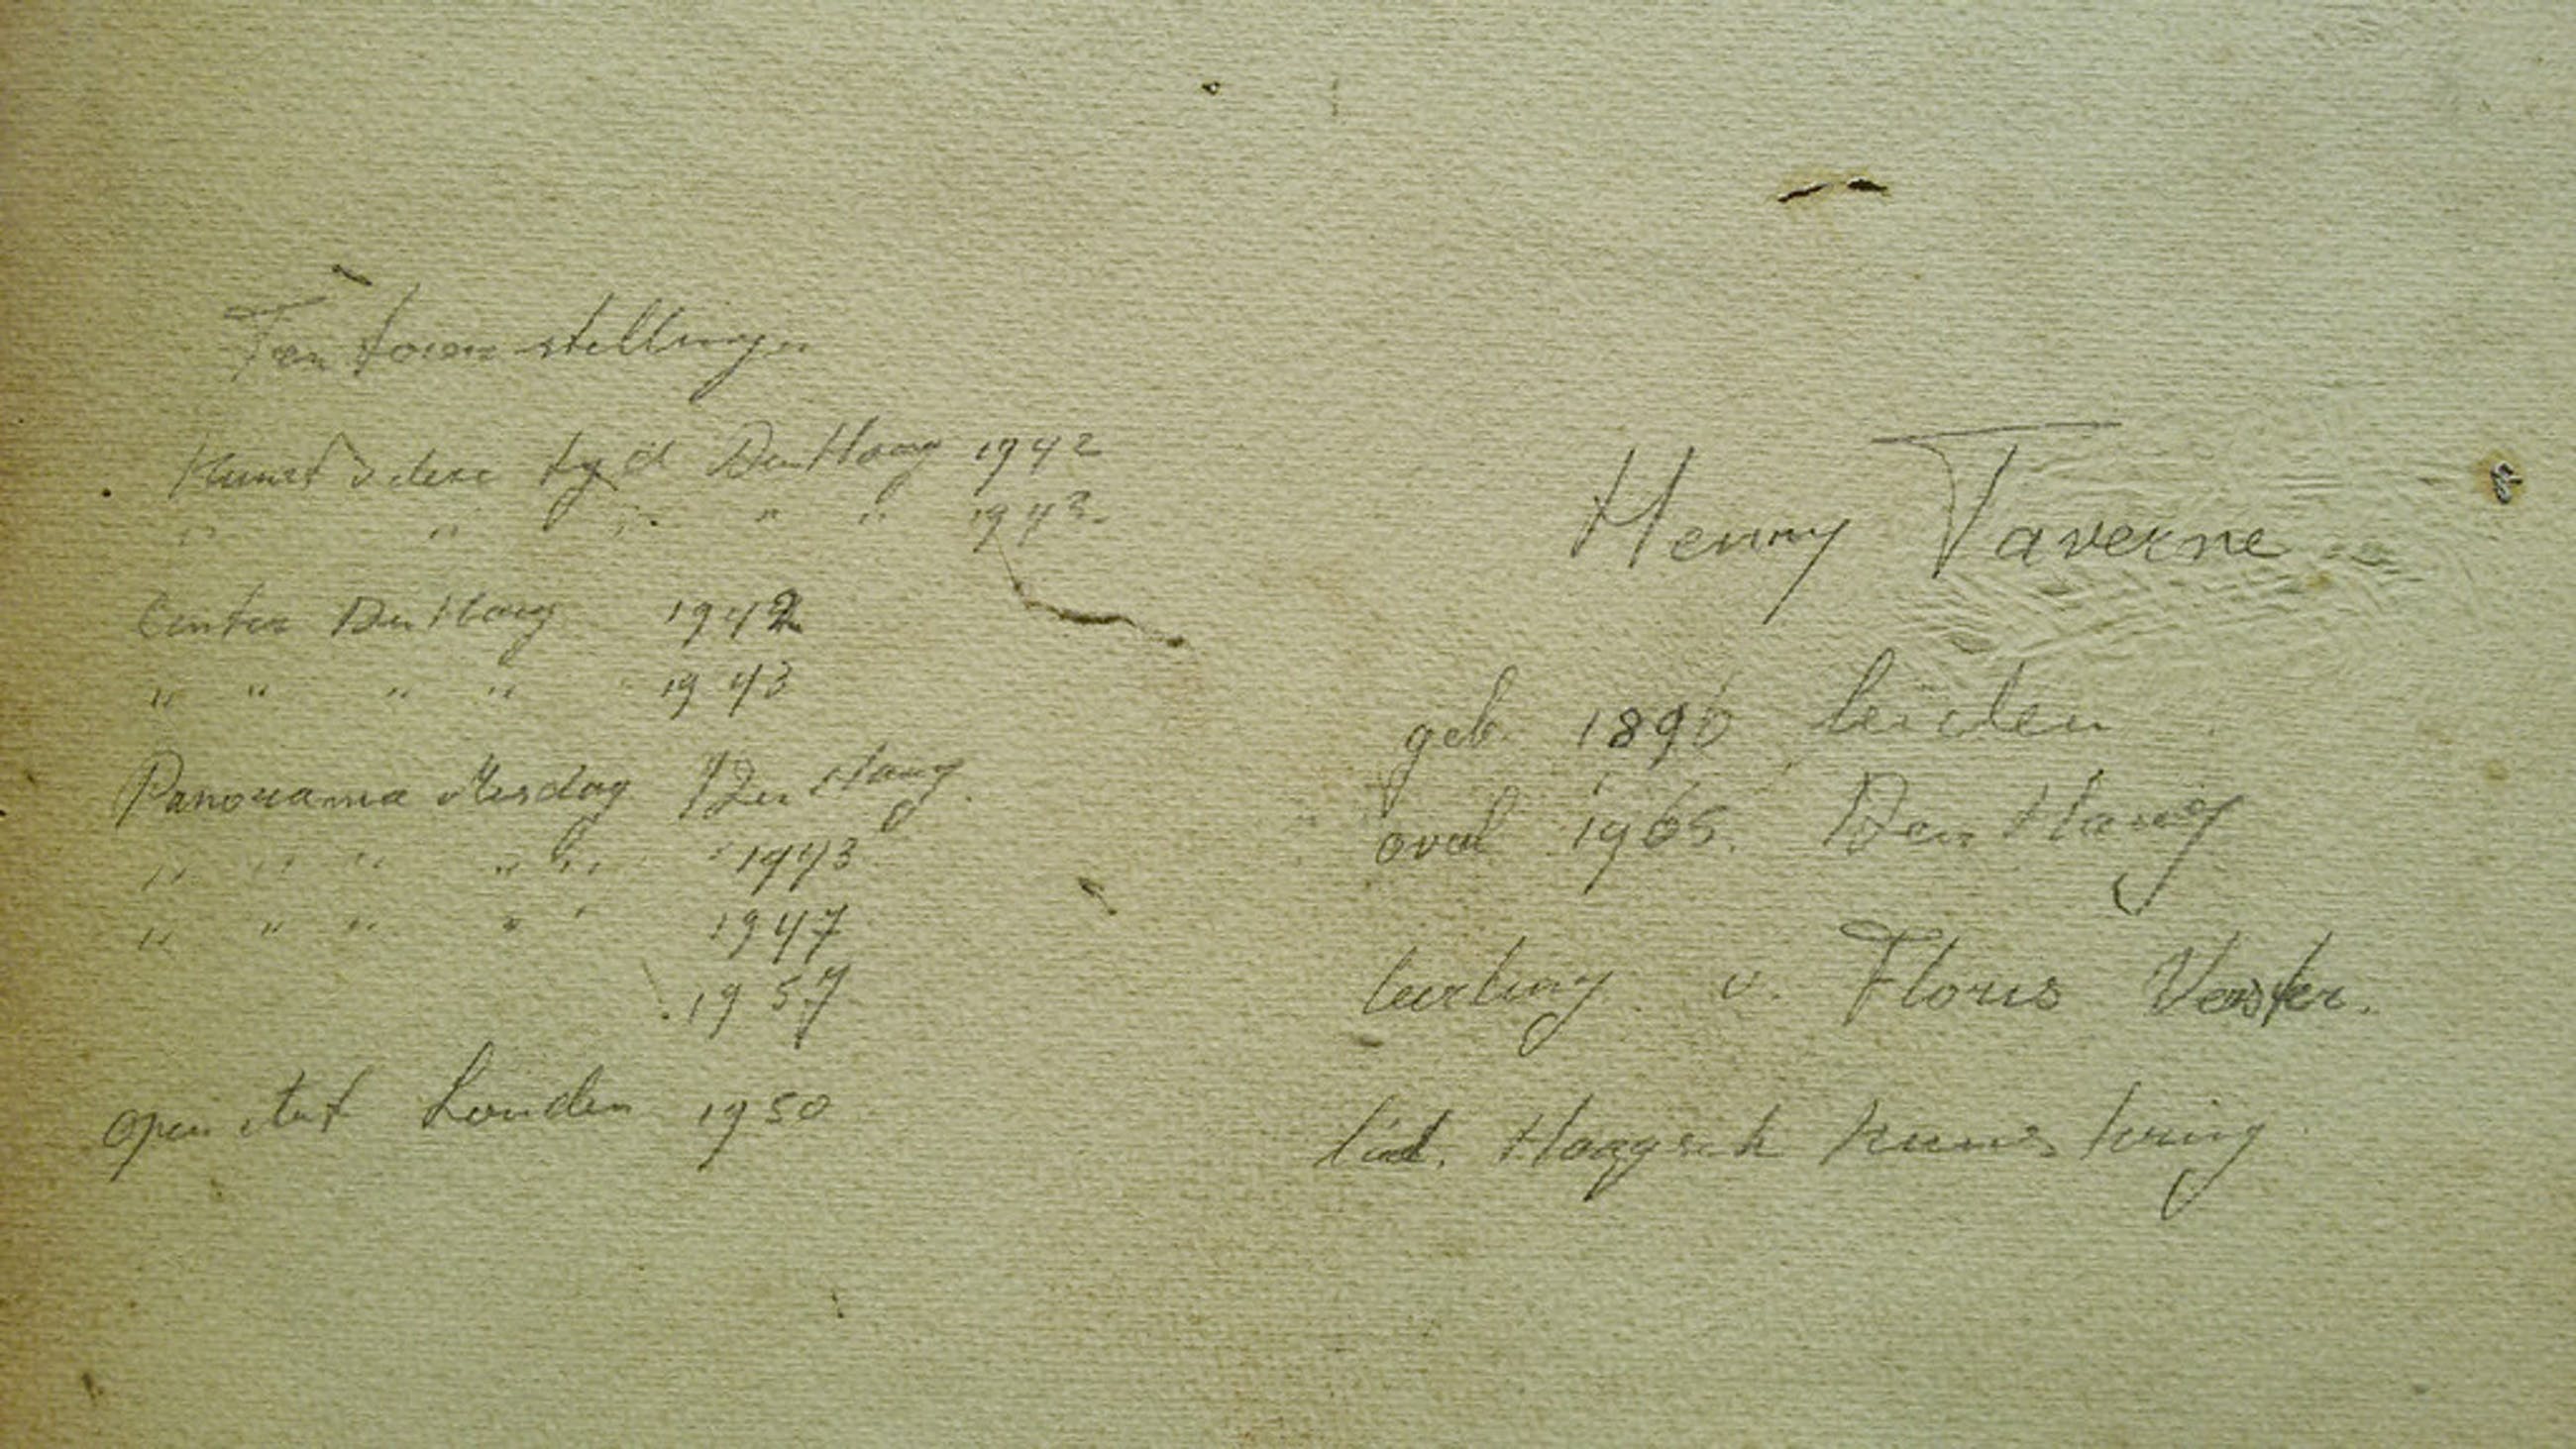 Tentoonstellingen
Kunst v deze tyd Den Haag 1942
" " " " " 1943
Center Den Haag 1942
" " " " 1943
Panorama Mesdag Den Haag
" " " " " " 1943
" " " " " 1947
1957
open Londen 1950
Henny Taverne
geb. 1896 leiden
oval 1965. Den Haag
leerling v. Floris Verster.
lid. Haagsch Kunskring